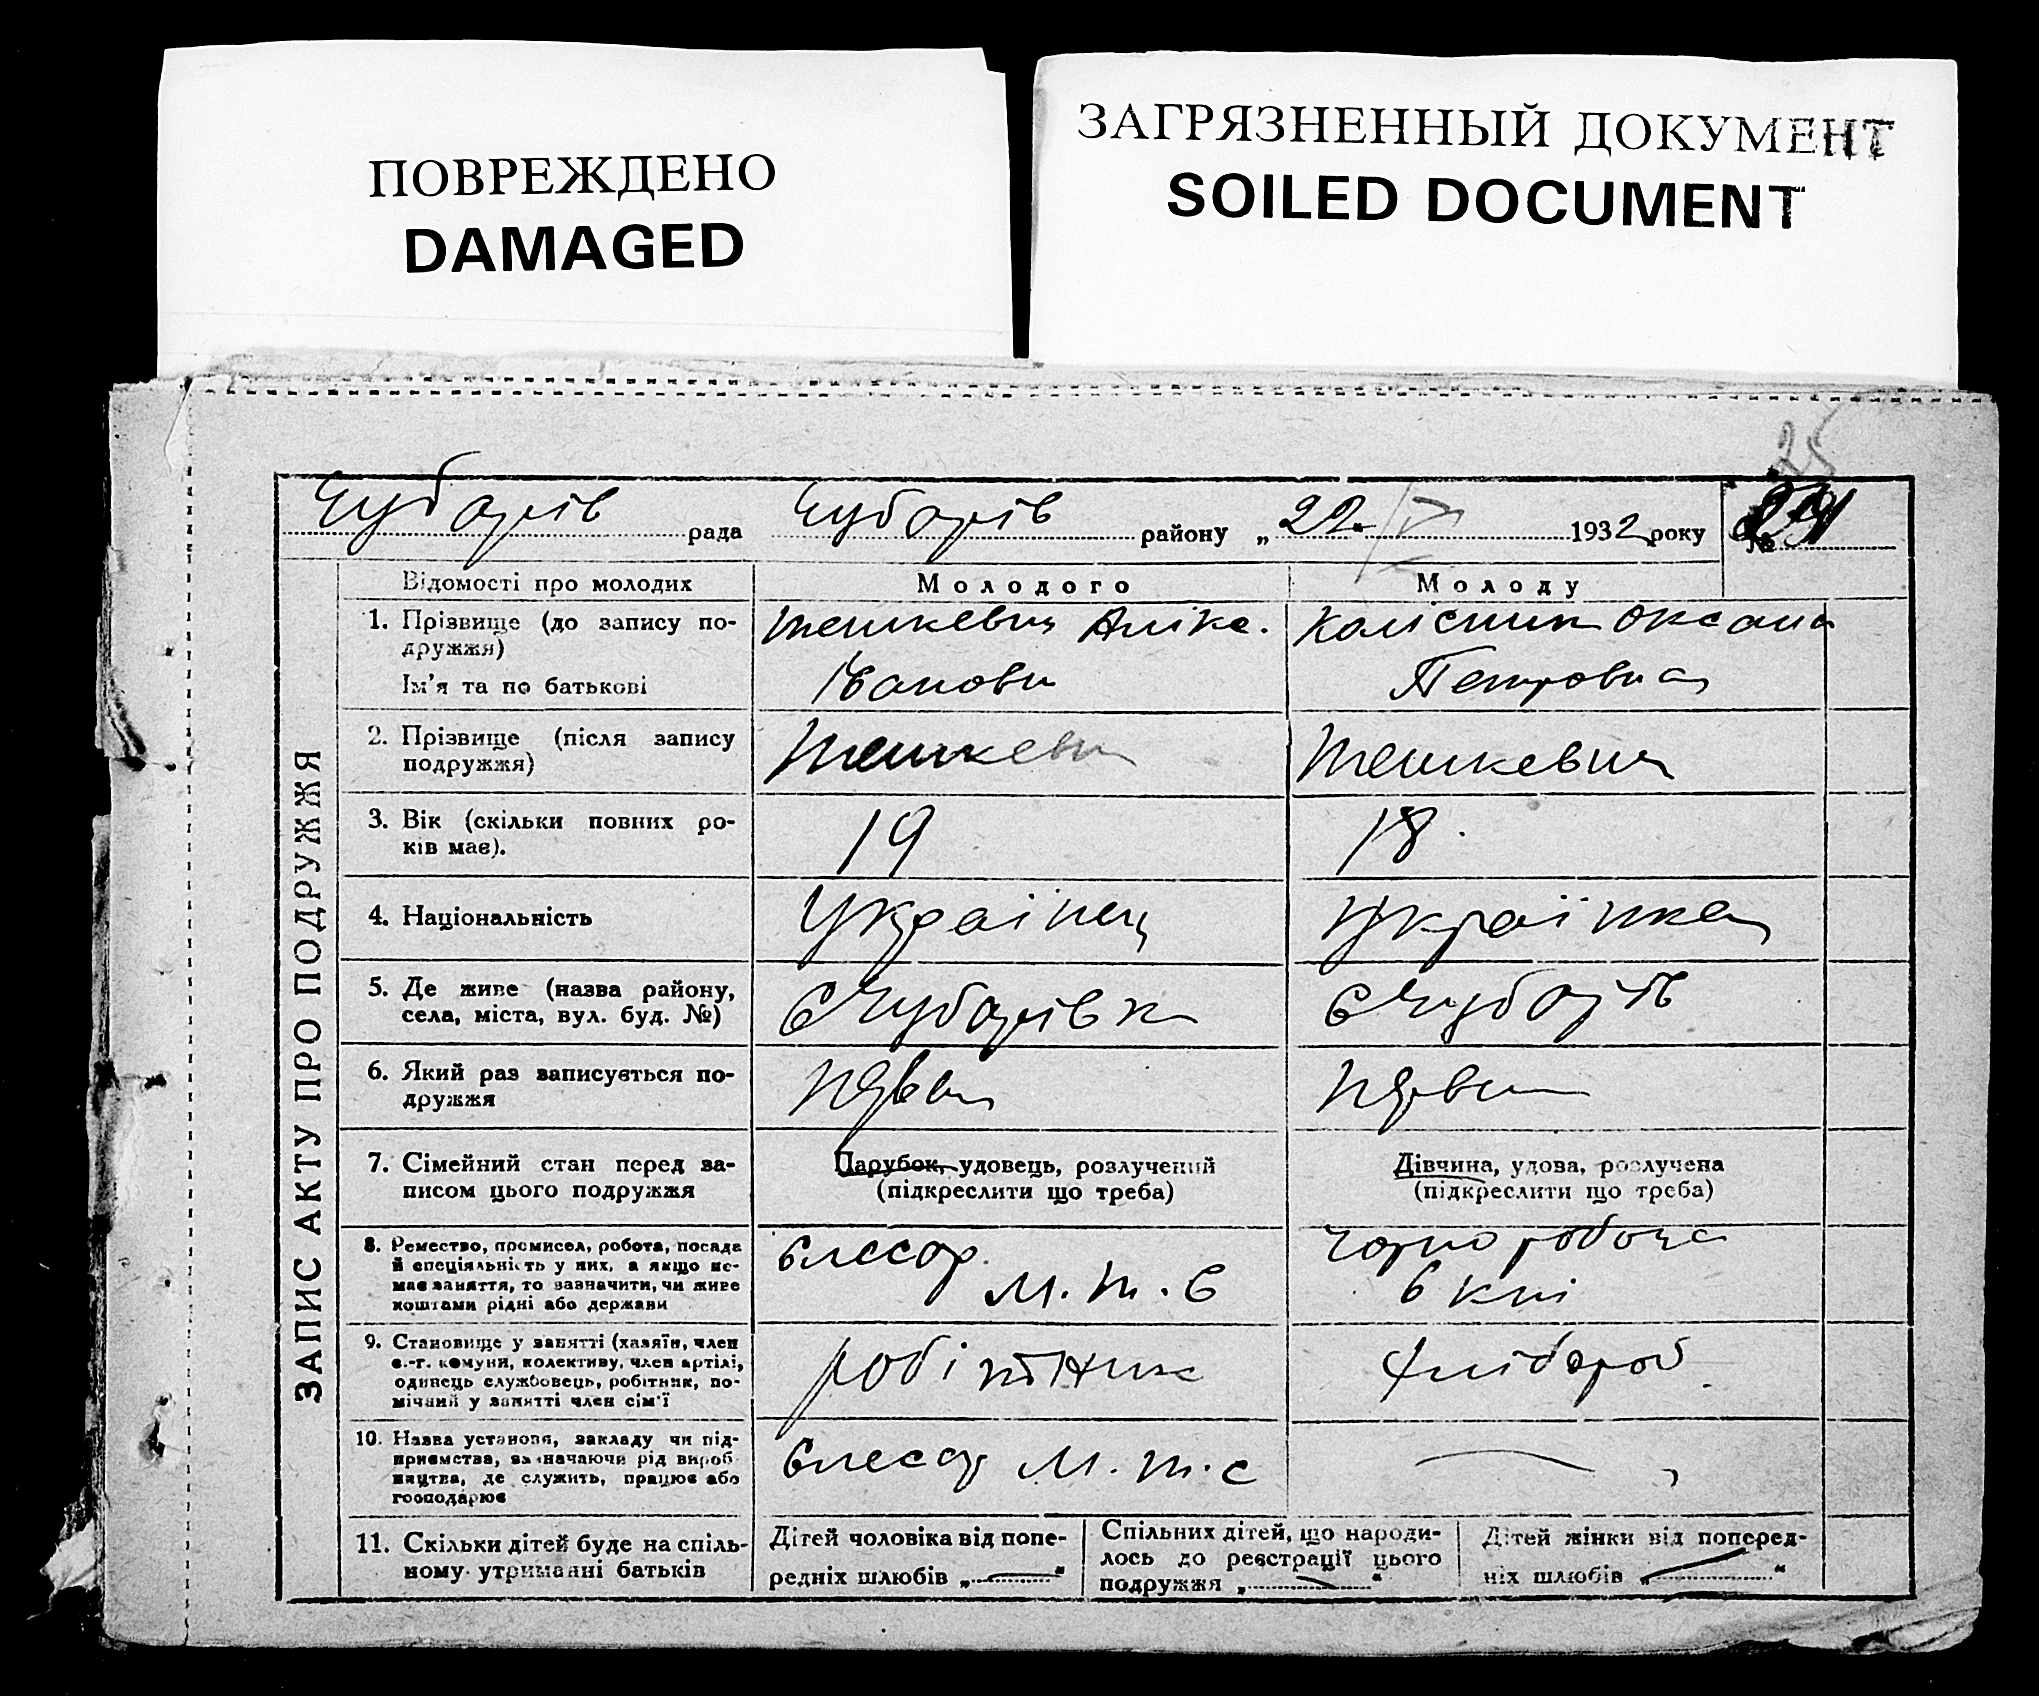 ПОВРЕЖДЕНО
DAMAGED
ЗАГРЯЗНЕННЫЙ ДОКУМЕНТ
SOILED DOCUMENT
25
Чубарів рада Чубарів району „22" IV 1932 року №
ЗАПИС АКТУ ПРО ПОДРУЖЖЯ
Відомості про молодих
Молодого
Молоду
1. Прізвище (до запису по-
дружжя)
Ім'я та по батькові
Тешкевич
Іванови
Оксана
Петровна
2. Прізвище (після запису
подружжя)
Тешкеви
Тешкевич
3. Вік (скільки повних ро-
ків має).
19
18
4. Національність
Українец
Українка
5. Де живе (назва району,
села, міста, вул. буд. №)
с Чубарівк
с Чубарів
6. Який раз записується по-
дружжя
Перви
Перви
7. Сімейний стан перед за-
писом цього подружжя
Парубок, удовець, розлучений
(підкреслити що треба)
Дівчина, удова, розлучена
(підкреслити що треба)
8. Ремество, промисел, робота, посада
й спеціяльність у них, а якщо не-
має заняття, то зазначити, чи живе
коштами рідні або держави
слесар
М.Т.С
чорноробоча
9. Становище у занятті (хазяїн, член
с.-г. комуни, колективу, член артілі,
одинець службовець, робітник, по-
мічний у занятті член сім'ї
робітник
хлібороб
10. Назва установи, закладу чи під-
приємства, зазначаючи рід вироб
ництва, де служить, працює або
господарює
слесар М.Т.С
11. Скільки дітей буде на спіль-
ному утриманні батьків
Дітей чоловіка від попе-
редніх шлюбів „ — "
Спільних дітей, що народи-
лось до реєстрації цього
подружжя „ — "
Дітей жінки від поперед-
ніх шлюбів „ — "